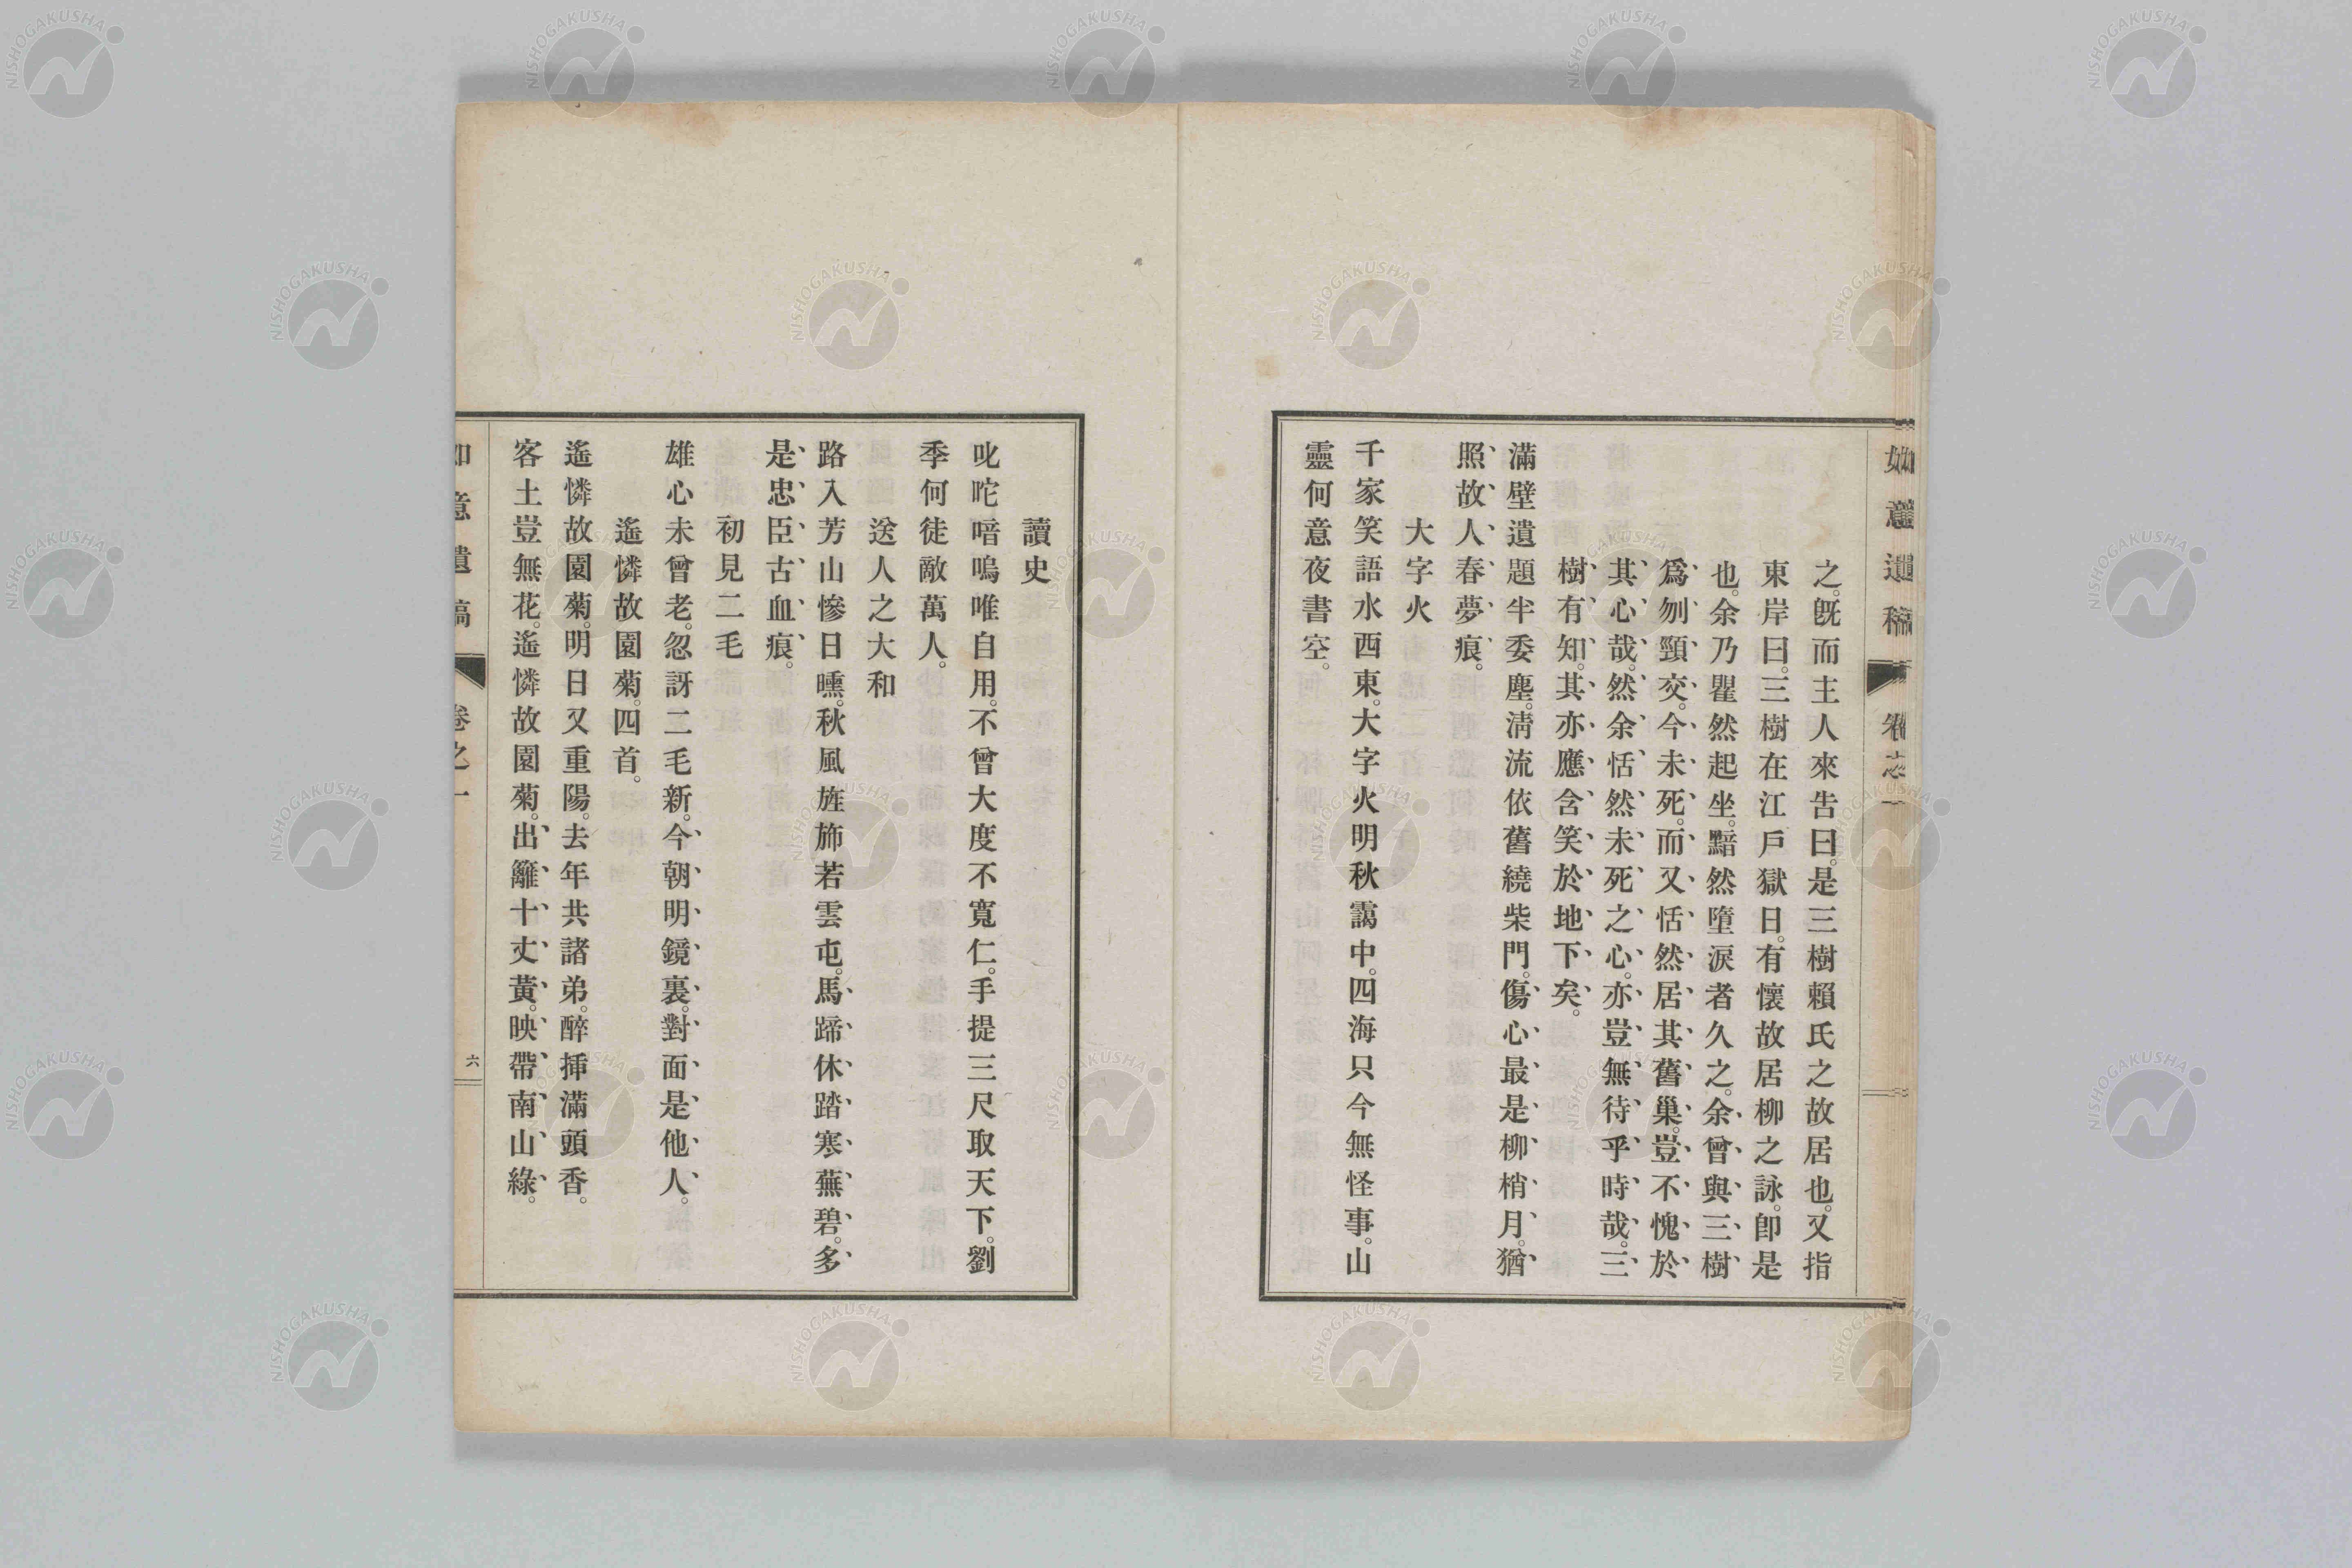 如意遺稿 卷之一
之。旣而主人來告曰。是三樹賴氏之故居也。又指
東岸曰。三樹在江戶獄日。有懷故居柳之詠。卽是
也。余乃瞿然起坐。黯然墮淚者久之。余曾與三樹
爲刎頸交。今未死。而又恬然居其舊巢。豈不愧於
其心哉。然余恬然未死之心。亦豈無待乎時哉。三
樹有知。其亦應含笑於地下矣。
滿壁遺題半委塵。淸流依舊繞柴門。傷心最是柳梢月。猶
照故人春夢痕。
大字火
千家笑語水西東。大字火明秋靄中。四海只今無怪事。山
靈何意夜書空。
讀史
叱咤喑嗚唯自用。不曾大度不寬仁。手提三尺取天下。劉
季何徒敵萬人。
送人之大和
路入芳山慘日曛。秋風旌斾若雲屯。馬蹄休踏寒蕪碧。多
是忠臣古血痕。
初見二毛
雄心未曾老。忽訝二毛新。今朝明鏡裏。對面是他人。
遙憐故園菊。四首。
遙憐故園菊。明日又重陽。去年共諸弟。醉揷滿頭香。
客土豈無花。遙憐故園菊。出籬十丈黃。映帶南山綠。
如意遺稿 卷之一 六
NISHOGAKUSHA